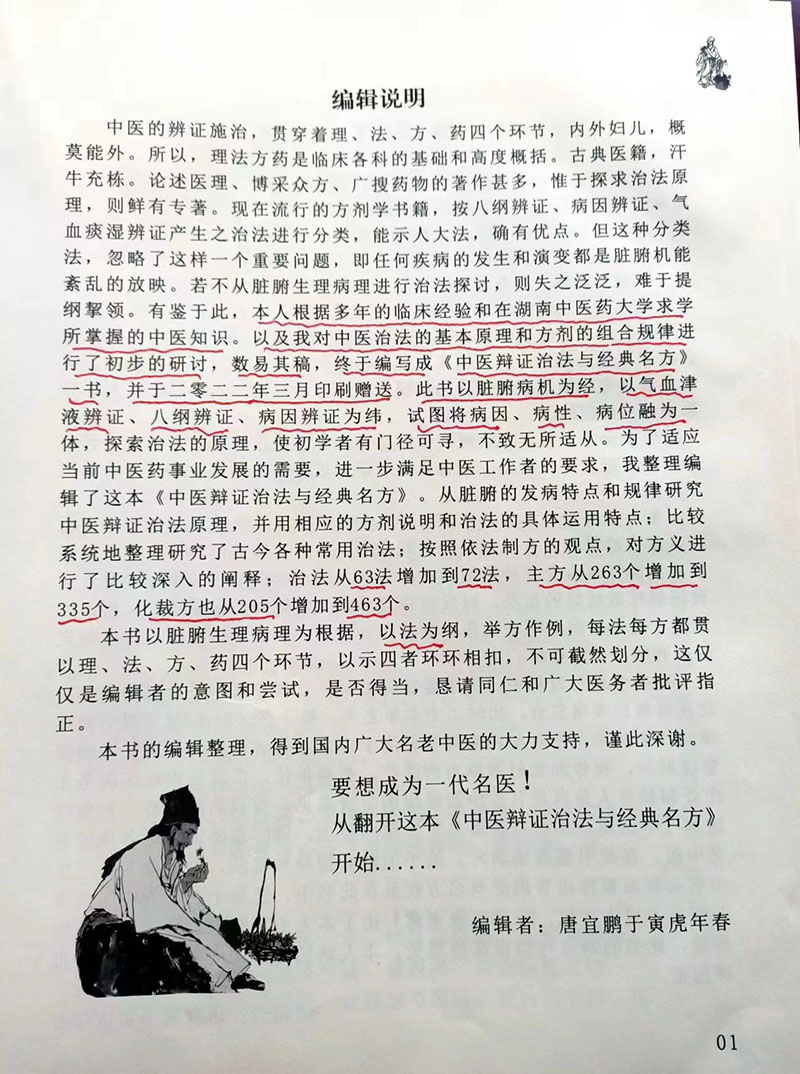 编辑说明
中医的辨证施治，贯穿着理、法、方、药四个环节，内外妇儿，概
莫能外。所以，理法方药是临床各科的基础和高度概括。古典医籍，汗
牛充栋。论述医理、博采众方、广搜药物的著作甚多，惟于探求治法原
理，则鲜有专著。现在流行的方剂学书籍，按八纲辨证、病因辨证、气
血痰湿辨证产生之治法进行分类，能示人大法，确有优点。但这种分类
法，忽略了这样一个重要问题，即任何疾病的发生和演变都是脏腑机能
紊乱的放映。若不从脏腑生理病理进行治法探讨，则失之泛泛，难于提
纲挈领。有鉴于此，本人根据多年的临床经验和在湖南中医药大学求学
所掌握的中医知识。以及我对中医治法的基本原理和方剂的组合规律进
行了初步的研讨，数易其稿，终于编写成《中医辩证治法与经典名方》
一书，并于二零二二年三月印刷赠送。此书以脏腑病机为经，以气血津
液辨证、八纲辨证、病因辨证为纬，试图将病因、病性、病位融为一
体，探索治法的原理，使初学者有门径可寻，不致无所适从。为了适应
当前中医药事业发展的需要，进一步满足中医工作者的要求，我整理编
辑了这本《中医辩证治法与经典名方》。从脏腑的发病特点和规律研究
中医辩证治法原理，并用相应的方剂说明和治法的具体运用特点；比较
系统地整理研究了古今各种常用治法；按照依法制方的观点，对方义进
行了比较深入的阐释；治法从63法增加到72法，主方从263个增加到
335个，化裁方也从205个增加到463个。
本书以脏腑生理病理为根据，以法为纲，举方作例，每法每方都贯
以理、法、方、药四个环节，以示四者环环相扣，不可截然划分，这仅
仅是编辑者的意图和尝试，是否得当，恳请同仁和广大医务者批评指
正。
本书的编辑整理，得到国内广大名老中医的大力支持，谨此深谢。
要想成为一代名医！
从翻开这本《中医辩证治法与经典名方》
开始......
编辑者：唐宜鹏于寅虎年春
01